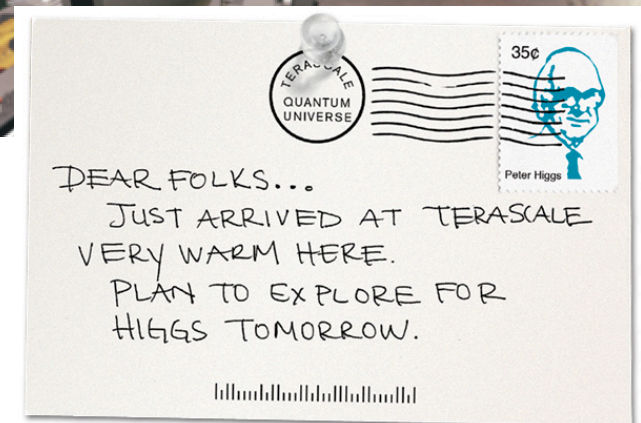 35¢
TERASCALE
QUANTUM
UNIVERSE
Peter Higgs
DEAR FOLKS...
JUST ARRIVED AT TERASCALE
VERY WARM HERE.
PLAN TO EXPLORE FOR
HIGGS TOMORROW.